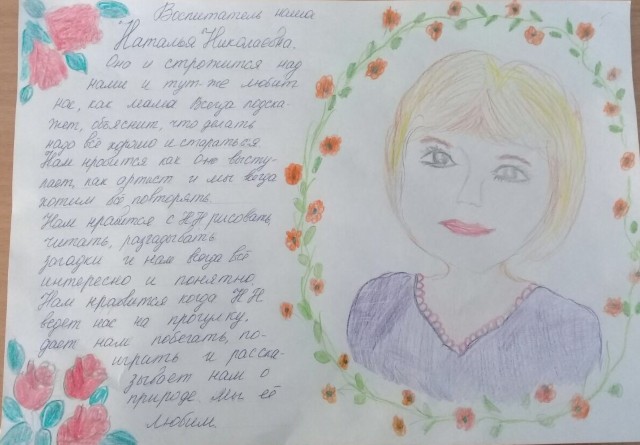 Воспитатель наша
Наталья Николаевна.
Она и строжится над
нами и тут же любит
нас, как мама Всегда подска-
жет, объяснит, что делать
надо всё хорошо и стараться
Нам нравится как Она высту-
пает, как артист и мы всегда
хотим всё повторять.
Нам нравится с НН рисовать,
читать, разгадывать
загадки и нам всегда всё
интересно и понятно.
Нам нравится когда Н Н
ведёт нас на прогулку.
дает нам побегать, по-
играть и расска-
зывает нам о
природе. Мы её
любим.